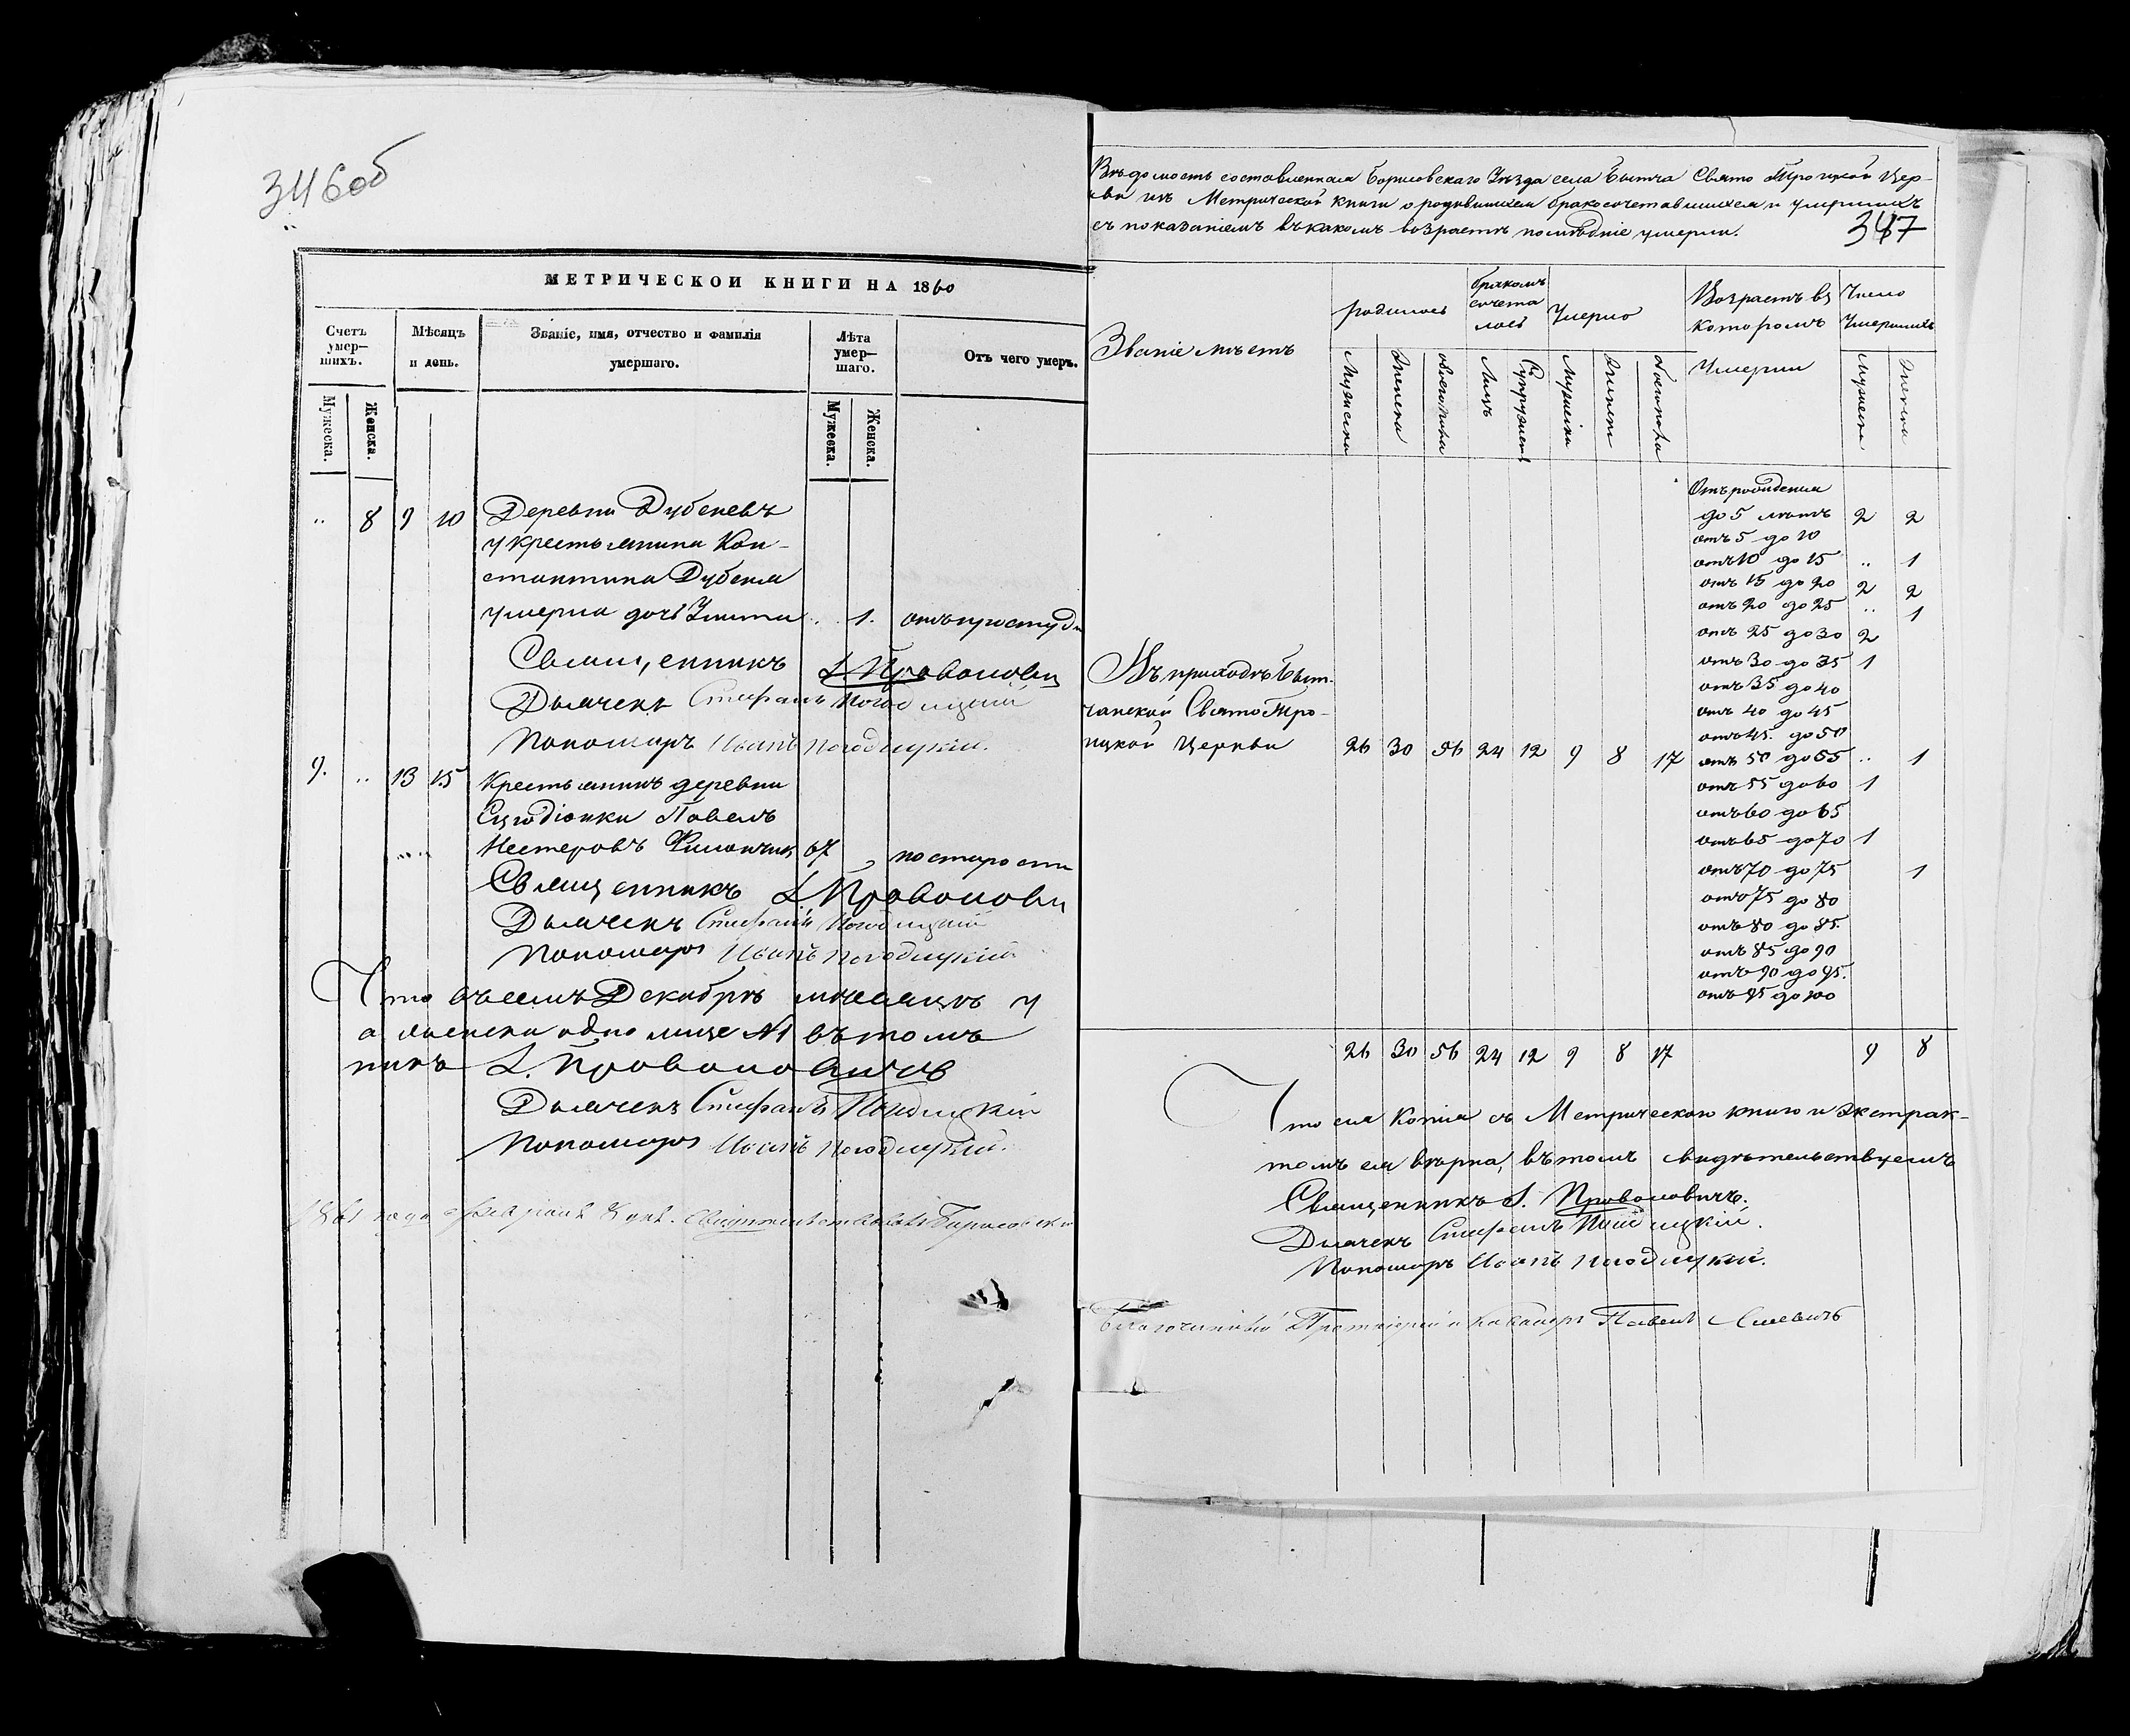 346об
МЕТРИЧЕСКОЙ КНИГИ НА 1860
Счетъ умер-шихъ.
Мужеска.
Женска.
Мѣсяцъ и день.
Званіе, имя, отчество и фамилія умершаго.
Лѣта умер-шаго.
Мужеска.
Женска.
Отъ чего умеръ.
.. 8 9 10 Деревни Дубеневъ
у крестьянина Кон-
стантина Дубеня
умерла дочь .. 1. отъ простуды
Священникъ
Дьячекъ Стефанъ
Пономарь Иванъ
9. .. 13 15 Крестьянинъ деревни
Павелъ
Нестеровъ 67 „ по старости
Священникъ
Дьячекъ Стефанъ
Пономарь Иванъ
Что въ семъ Декабрѣ мѣсяцѣ у
а женска одно лице №1 въ томъ
никъ
Дьячекъ Стефанъ
Пономарь Иванъ
1861 года Февраля 8 дня. свидѣтельствовалъ Борисовскій
Вѣдомость составленная Борисовскаго Уѣзда села Бытча Свято Троицкой Цер-
кви изъ Метрической книги о родившихся бракосочетавшихся и умершихъ
съ показаніемъ въ какомъ возрастѣ послѣдніе умерли.
347
Званіе мѣстъ
родилось
Мужеска
Женска
обоего пола
бракомъ сочета лось
Лицъ
Супружест
Умерло
Мужеска
Женска
обоего пола
Возрастъ въ которомъ Умерли
Число Умершихъ
Мужеска
Женска
Отъ рожденія
до 5 лѣтъ 2 2
отъ 5 до 10
отъ 10 до 15 .. 1
отъ 15 до 20 2 2
отъ 20 до 25 .. 1
отъ 25 до 30 2
отъ 30 до 35 1
отъ 35 до 40
отъ 40 до 45
отъ 45. до 50
отъ 50 до 55 .. 1
отъ 55 до 60 1
отъ 60 до 65
отъ 65 до 70 1
отъ 70 до 75 1
отъ 75 до 80
отъ 80 до 85.
отъ 85 до 90
отъ 90 до 95.
отъ 95 до 100
Въ приходѣ Быт-
чанской Свято Тро-
ицкой Церкви 26 30 56 24 12 9 8 17
26 30 56 24 12 9 8 17 9 8
Что сія копія съ Метрическою книгою и экстрак-
томъ ея вѣрна, въ томъ свидѣтельствуемъ
Священникъ
Дьячекъ Стефанъ
Пономарь Иванъ
Благочинный Протоіерей и Кавалеръ Павелъ